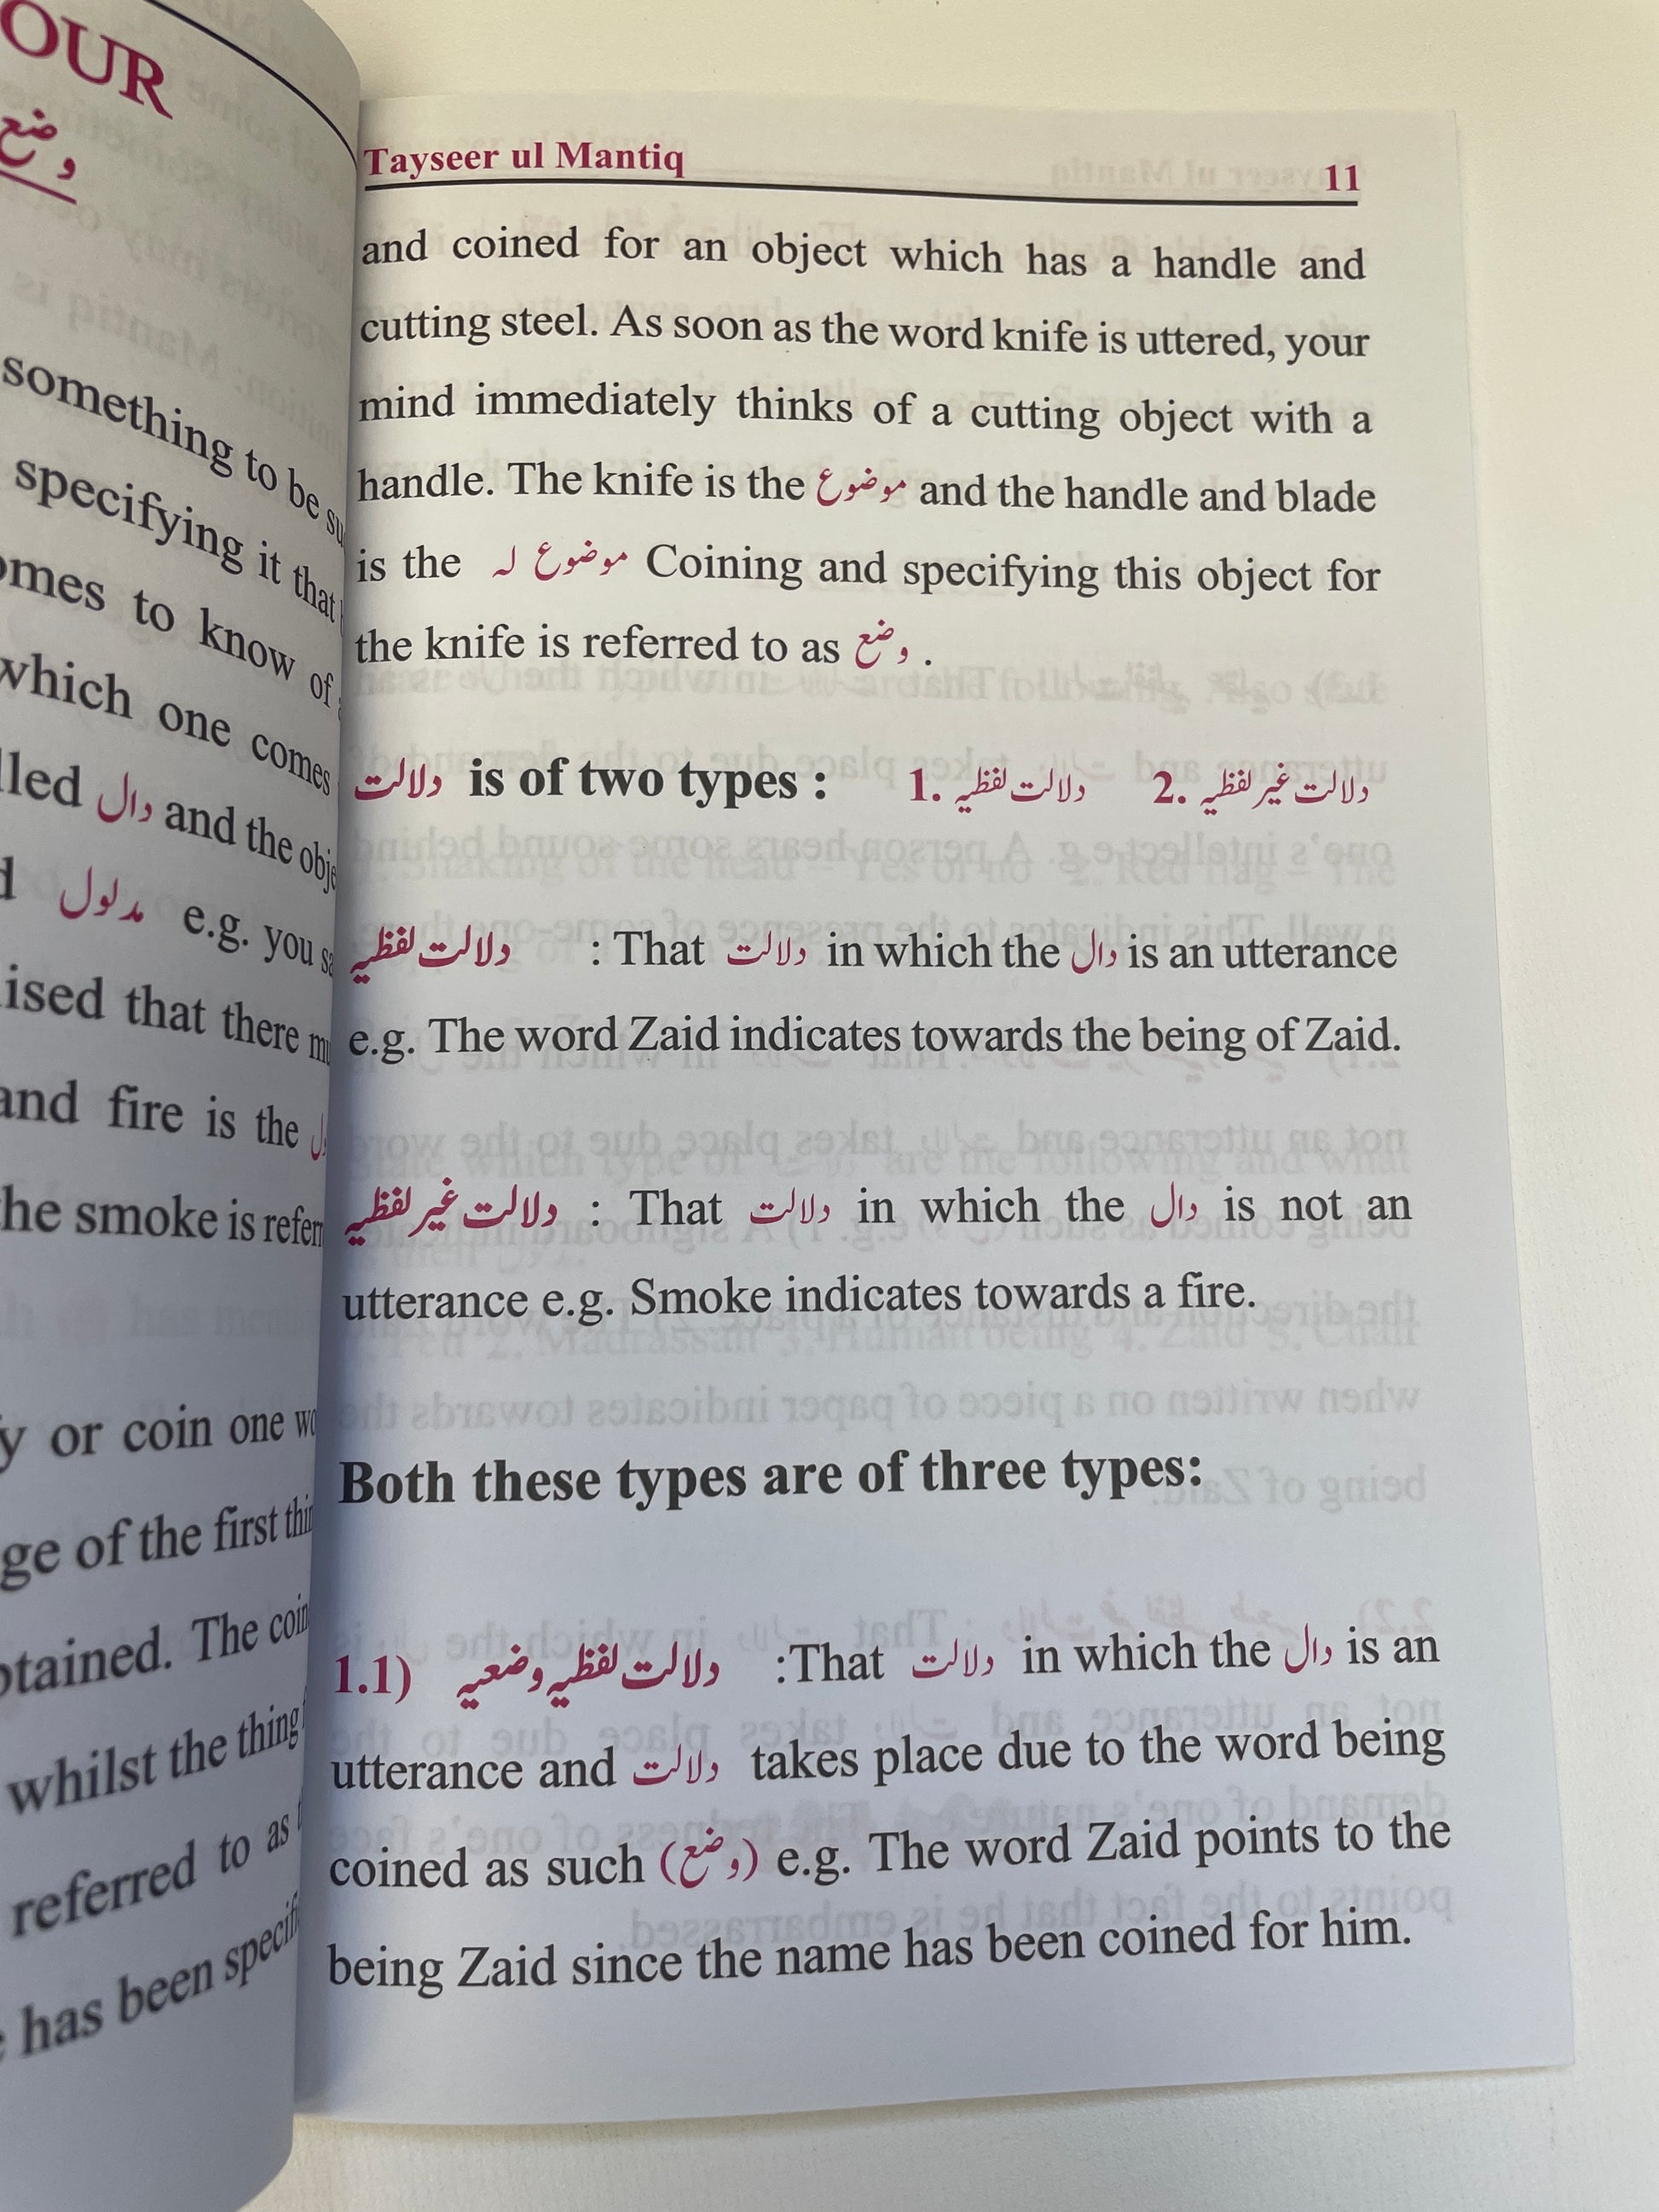 OUR
وضع
something to be
specifying it that
to know of
which one comes
دال and the
مدلول e.g. you
that there
and fire is the
smoke is
or coin one
of the first
The
whilst the thing
referred to as
has been
Tayseer ul Mantiq 11
and coined for an object which has a handle and
cutting steel. As soon as the word knife is uttered, your
mind immediately thinks of a cutting object with a
handle. The knife is the موضوع and the handle and blade
is the موضوع لہ Coining and specifying this object for
the knife is referred to as وضع .
دلالت is of two types : 1. دلالت لفظیہ 2. دلالت غیر لفظیہ
دلالت لفظیہ : That دلالت in which the دال is an utterance
e.g. The word Zaid indicates towards the being of Zaid.
دلالت غیر لفظیہ : That دلالت in which the دال is not an
utterance e.g. Smoke indicates towards a fire.
Both these types are of three types:
1.1) دلالت لفظیہ وضعیہ :That دلالت in which the دال is an
utterance and دلالت takes place due to the word being
coined as such (وضع) e.g. The word Zaid points to the
being Zaid since the name has been coined for him.